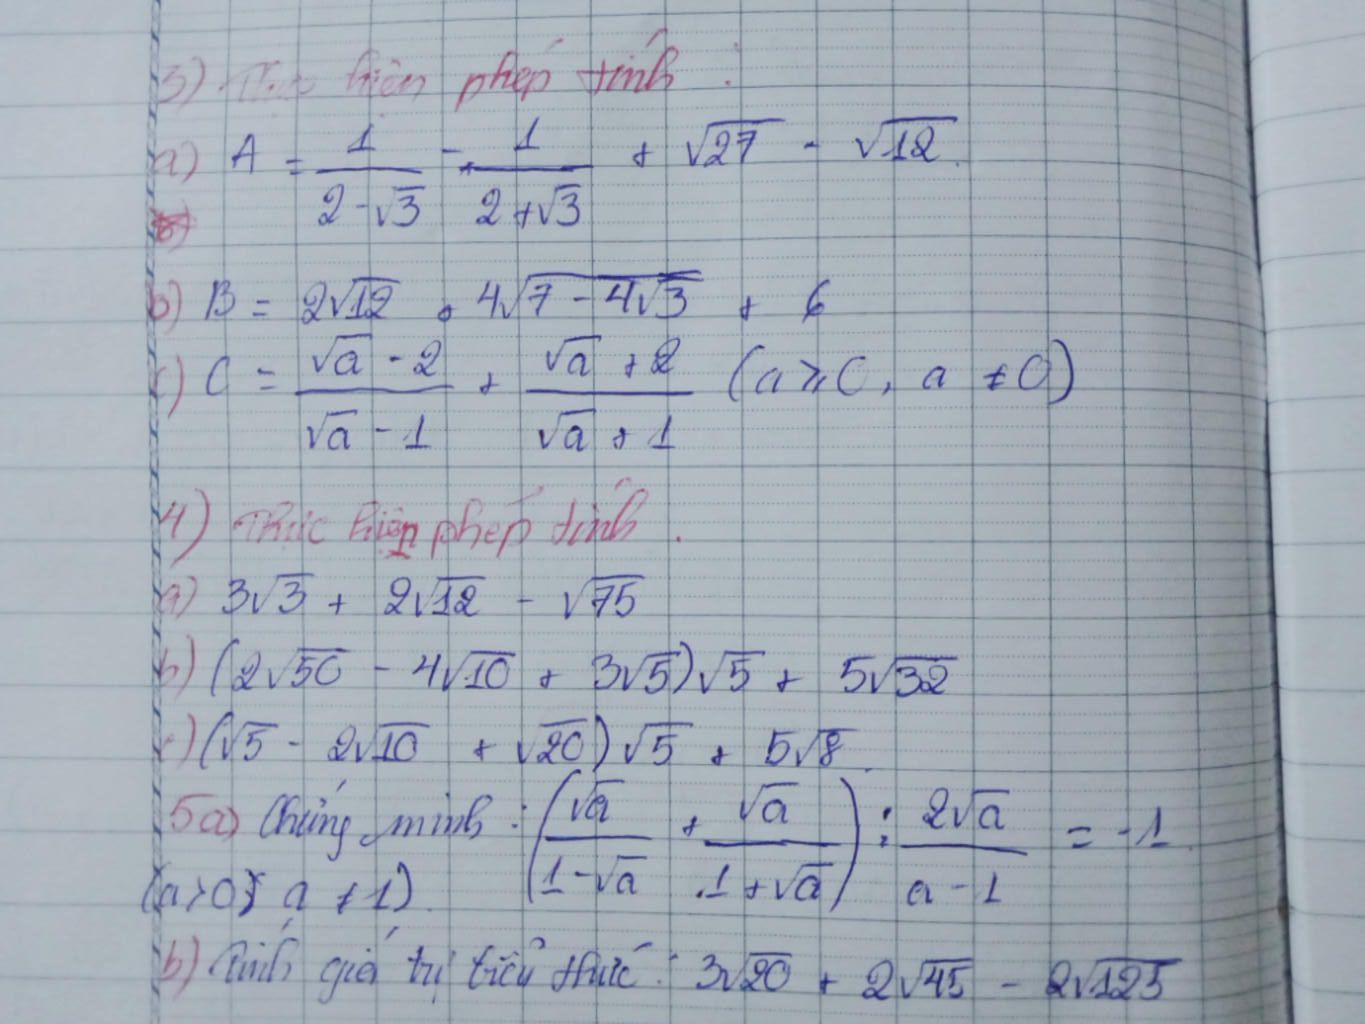 3) Thực hiện phép tính :
a) A = 1/(2-√3) - 1/(2+√3) + √27 - √12.
b) B = 2√12 + 4√(7-4√3) + 6
c) C = (√a - 2)/(√a - 1) + (√a + 2)/(√a + 1) (a ≥ 0, a ≠ 0)
4) Thực hiện phép tính.
a) 3√3 + 2√12 - √75
b) (2√50 - 4√10 + 3√5)√5 + 5√32
c) (√5 - 2√10 + √20)√5 + 5√8.
5a) Chứng minh : (√a/(1-√a) + √a/(1+√a)) : 2√a/(a-1) = -1.
(a>0; a ≠ 1).
b) Tính giá trị biểu thức : 3√20 + 2√45 - 2√125